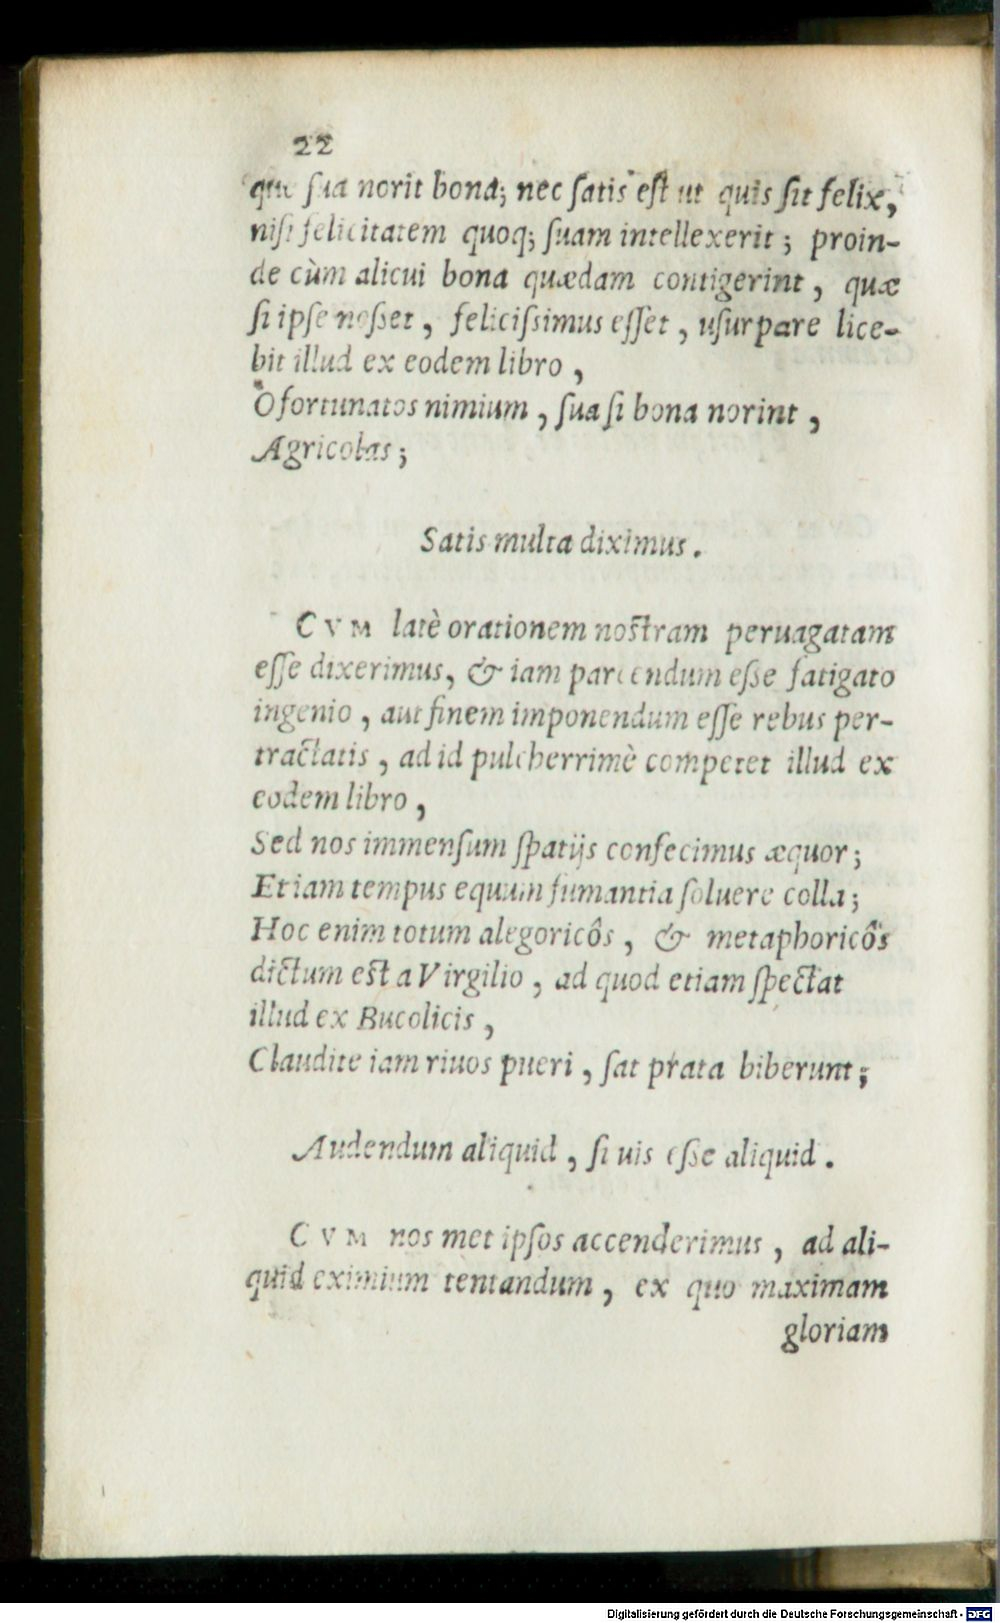 22
que ſua norit bona; nec ſatis eſt ut quis ſit felix,
niſi felicitatem quoq; ſuam intellexerit; proin-
de cùm alicui bona quædam contigerint, quæ
ſi ipſe noſſet, feliciſsimus eſſet, uſurpare lice-
bit illud ex eodem libro,
O fortunatos nimium, ſua ſi bona norint,
Agricolas;
Satis multa diximus.
CVM latè orationem noſtram peruagatam
eſſe dixerimus, & iam parcendum eſſe fatigato
ingenio, aut finem imponendum eſſe rebus per-
tractatis, ad id pulcherrimè competet illud ex
eodem libro,
Sed nos immenſum ſpatijs confecimus æquor;
Et iam tempus equum fumantia ſoluere colla;
Hoc enim totum alegoricôs, & metaphoricôs
dictum eſt a Virgilio, ad quod etiam ſpectat
illud ex Bucolicis,
Claudite iam riuos pueri, ſat prata biberunt;
Audendum aliquid, ſi uis eſſe aliquid.
CVM nos met ipſos accenderimus, ad ali-
quid eximium tentandum, ex quo maximam
gloriam
Digitalisierung gefördert durch die Deutsche Forschungsgemeinschaft - DFG